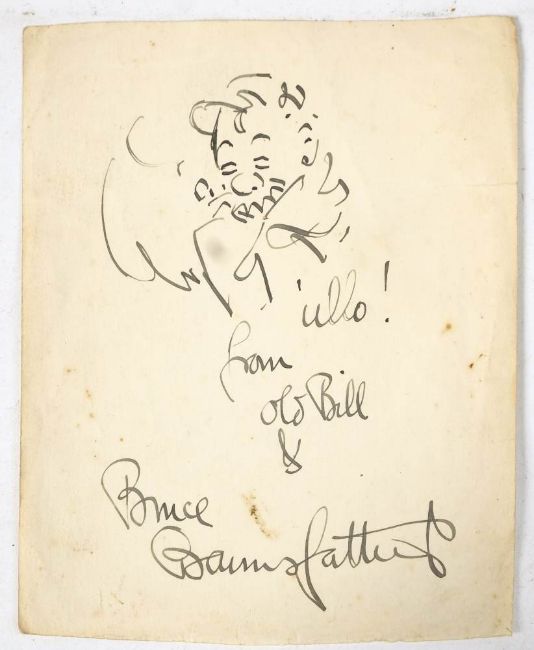 'ullo!
from
old Bill
&
Bruce
Bairnsfather